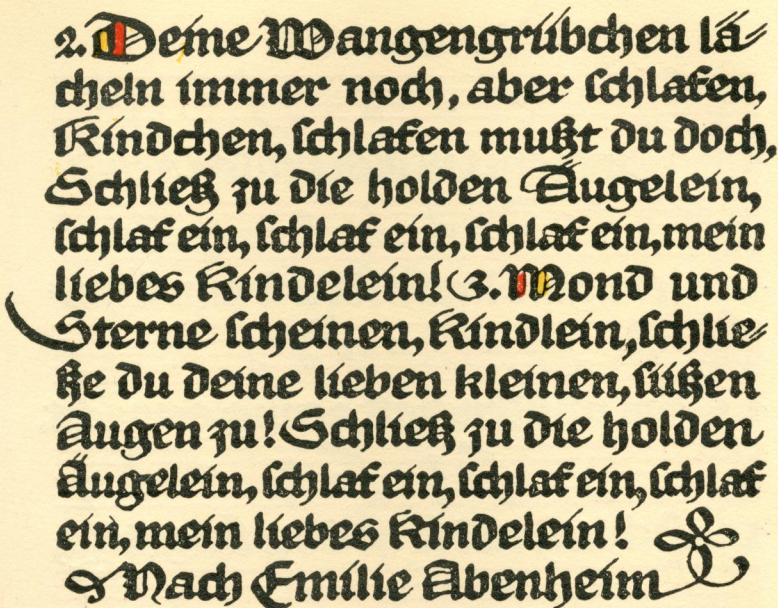 2. Deine Wangengrübchen lä=
cheln immer noch, aber schlafen,
Kindchen, schlafen mußt du doch,
Schließ zu die holden Äugelein,
schlaf ein, schlaf ein, schlaf ein, mein
liebes Kindelein! 3. Mond und
Sterne scheinen, Kindlein, schlie=
ße du deine lieben kleinen, süßen
Augen zu! Schließ zu die holden
Äugelein, schlaf ein, schlaf ein, schlaf
ein, mein liebes Kindelein!
Nach Emilie Abenheim